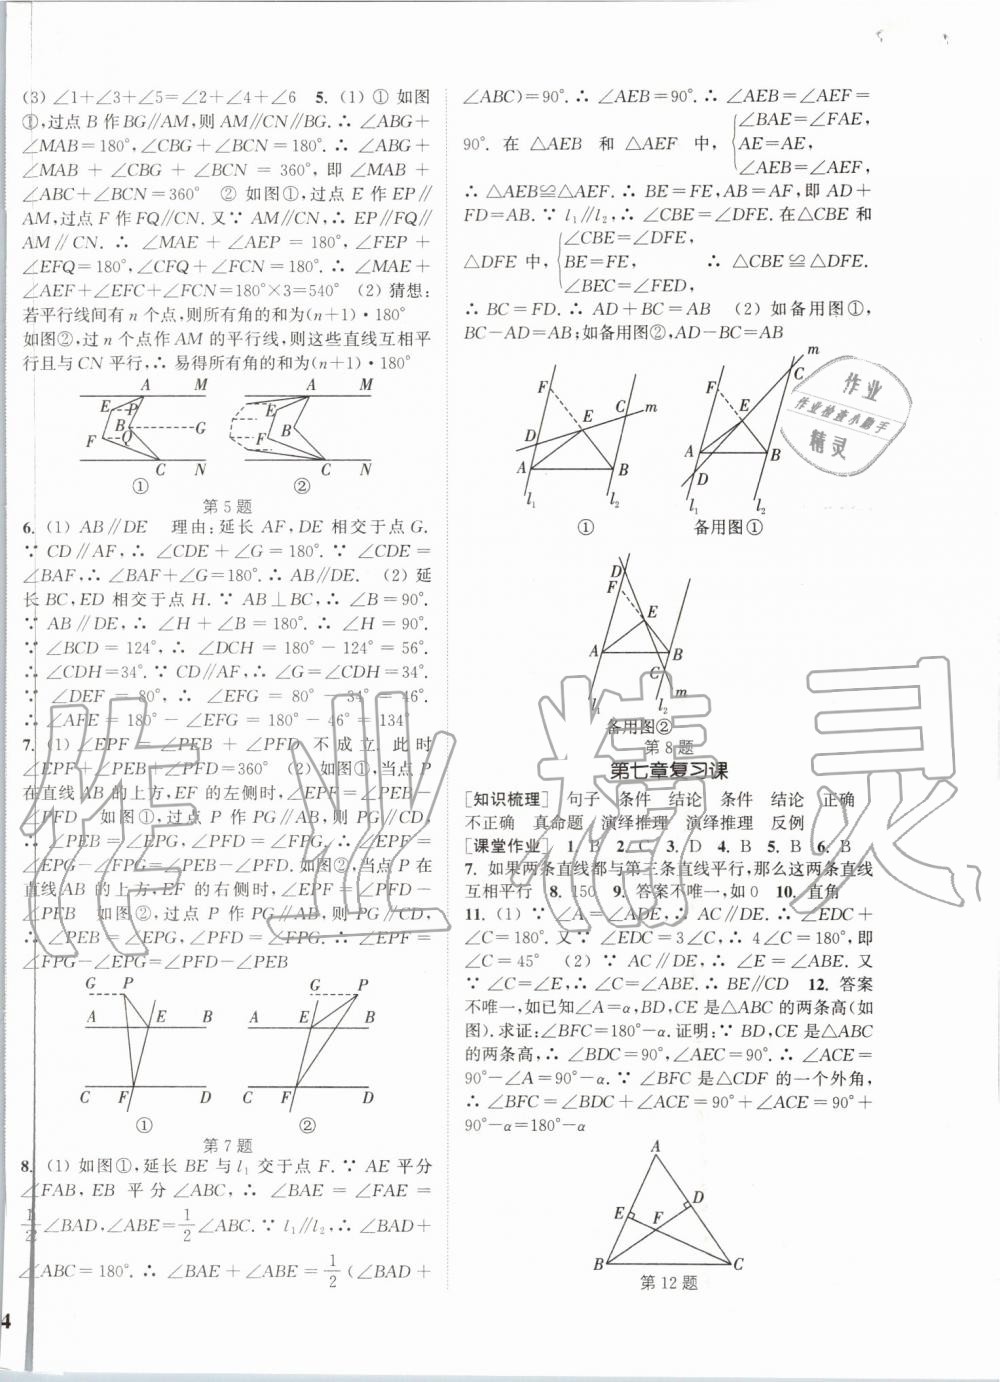 (3) ∠1+∠3+∠5=∠2+∠4+∠6　5. (1) ① 如图
①,过点 B 作 BG∥AM,则 AM∥CN∥BG.∴ ∠ABG+
∠MAB=180°,∠CBG+∠BCN=180°.∴ ∠MAB+
∠ABG + ∠CBG + ∠BCN = 360°, 即 ∠MAB +
∠ABC+∠BCN=360°　② 如图①,过点 E 作 EP∥
AM,过点 F 作 FQ∥CN.又∵ AM∥CN,∴ EP∥FQ∥
AM∥CN.∴ ∠MAE + ∠AEP = 180°, ∠FEP +
∠EFQ=180°,∠CFQ+∠FCN=180°.∴ ∠MAE+
∠AEF+∠EFC+∠FCN=180°×3=540°　(2) 猜想:
若平行线间有 n 个点,则所有角的和为(n+1)·180°
如图②,过 n 个点作 AM 的平行线,则这些直线互相平
行且与 CN 平行,∴ 易得所有角的和为(n+1)·180°
A M
E P
B G
F Q
C N
①
A M
E
B
F
C N
②
第 5 题
6. (1) AB∥DE　理由:延长 AF,DE 相交于点 G.
∵ CD∥AF,∴ ∠CDE+∠G=180°.∵ ∠CDE=
∠BAF,∴ ∠BAF+∠G=180°.∴ AB∥DE.　(2) 延
长 BC,ED 相交于点 H.∵ AB⊥BC,∴ ∠B=90°.
∵ AB∥DE,∴ ∠H+∠B=180°.∴ ∠H=90°.
∵ ∠BCD=124°,∴ ∠DCH=180°-124°=56°.
∴ ∠CDH=34°.∵ CD∥AF,∴ ∠G=∠CDH=34°.
∵ ∠DEF = 80°,∴ ∠EFG = 80° - 34° = 46°.
∴ ∠AFE=180°-∠EFG=180°-46°=134°
7. (1) ∠EPF = ∠PEB + ∠PFD 不成立.此时
∠EPF+∠PEB+∠PFD=360°　(2) 如图①,当点 P
在直线 AB 的上方,EF 的左侧时,∠EPF=∠PEB-
∠PFD　如图①,过点 P 作 PG∥AB,则 PG∥CD,
∴ ∠PEB=∠EPG,∠PFD=∠FPG.∴ ∠EPF=
∠EPG-∠FPG=∠PEB-∠PFD　如图②,当点 P 在
直线 AB 的上方,EF 的右侧时,∠EPF = ∠PFD-
∠PEB　如图②,过点 P 作 PG∥AB,则 PG∥CD,
∴ ∠PEB=∠EPG,∠PFD=∠FPG.∴ ∠EPF=
∠FPG-∠EPG=∠PFD-∠PEB
G P
A E B
C F D
①
G P
A E B
C F D
②
第 7 题
8. (1) 如图①,延长 BE 与 l₁ 交于点 F.∵ AE 平分
∠FAB,EB 平分∠ABC,∴ ∠BAE=∠FAE=
1/2∠BAD,∠ABE=1/2∠ABC.∵ l₁∥l₂,∴ ∠BAD+
∠ABC=180°.∴ ∠BAE+∠ABE=1/2(∠BAD+
∠ABC)=90°.∴ ∠AEB=90°.∴ ∠AEB=∠AEF=
90°. 在 △AEB 和 △AEF 中, {∠BAE=∠FAE,
AE=AE,
∠AEB=∠AEF,
∴ △AEB≌△AEF.∴ BE=FE,AB=AF,即 AD+
FD=AB.∵ l₁∥l₂,∴ ∠CBE=∠DFE.在△CBE 和
△DFE 中, {∠CBE=∠DFE,
BE=FE,　∴ △CBE≌△DFE.
∠BEC=∠FED,
∴ BC=FD.∴ AD+BC=AB　(2) 如备用图①,
BC-AD=AB;如备用图②,AD-BC=AB
F C m
D E
A B
l₁ l₂
①
m
F C
E
A B
D
l₁ l₂
备用图①
D
F
E
A B
C
l₁ l₂ m
备用图②
第 8 题
第七章复习课
[知识梳理]　句子　条件　结论　条件　结论　正确
不正确　真命题　演绎推理　演绎推理　反例
[课堂作业]　1. B　2. C　3. D　4. B　5. B　6. B
7. 如果两条直线都与第三条直线平行,那么这两条直线
互相平行　8. 150　9. 答案不唯一,如 0　10. 直角
11. (1) ∵ ∠A=∠ADE,∴ AC∥DE.∴ ∠EDC+
∠C=180°.又∵ ∠EDC=3∠C,∴ 4∠C=180°,即
∠C=45°　(2) ∵ AC∥DE,∴ ∠E=∠ABE.又
∵ ∠C=∠E,∴ ∠C=∠ABE.∴ BE∥CD　12. 答案
不唯一,如已知∠A=α,BD,CE 是△ABC 的两条高(如
图).求证:∠BFC=180°-α.证明:∵ BD,CE 是△ABC
的两条高,∴ ∠BDC=90°,∠AEC=90°.∴ ∠ACE=
90°-∠A=90°-α.∵ ∠BFC 是△CDF 的一个外角,
∴ ∠BFC=∠BDC+∠ACE=90°+∠ACE=90°+
90°-α=180°-α
A
D
E
F
B C
第 12 题
作业
作业检查小助手
精灵
作业精灵
4